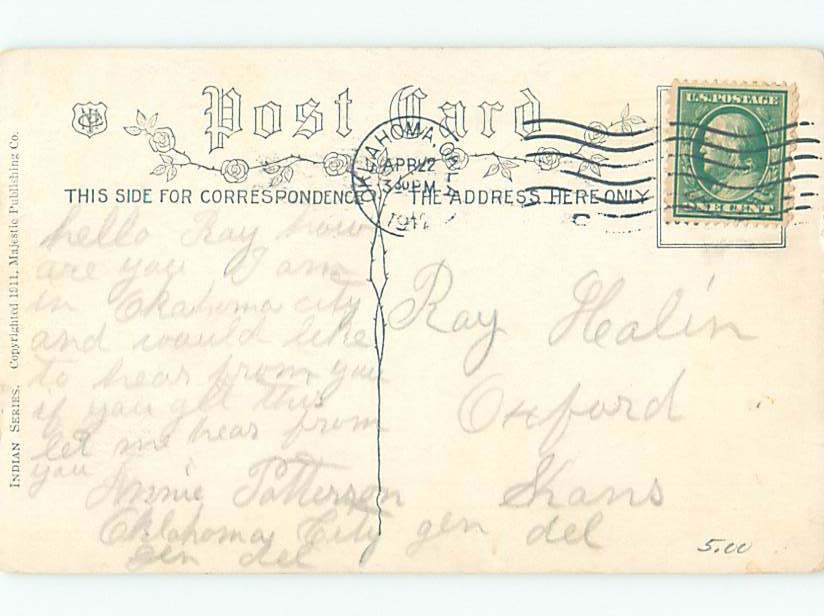 Post Card
THIS SIDE FOR CORRESPONDENCE
THE ADDRESS HERE ONLY
OKLAHOMA, OKLA.
APR 22
3 30 PM
U.S. POSTAGE
ONE CENT
INDIAN SERIES. Copyrighted 1911. Majestic Publishing Co.
hello Ray how
are you I am
in Okahoma city
and would like
to hear from you
if you get this
let me hear from
you
Annie Patterson
Oklahoma City
gen del
Ray Healin
Oxford
Skans
gen del
5.00